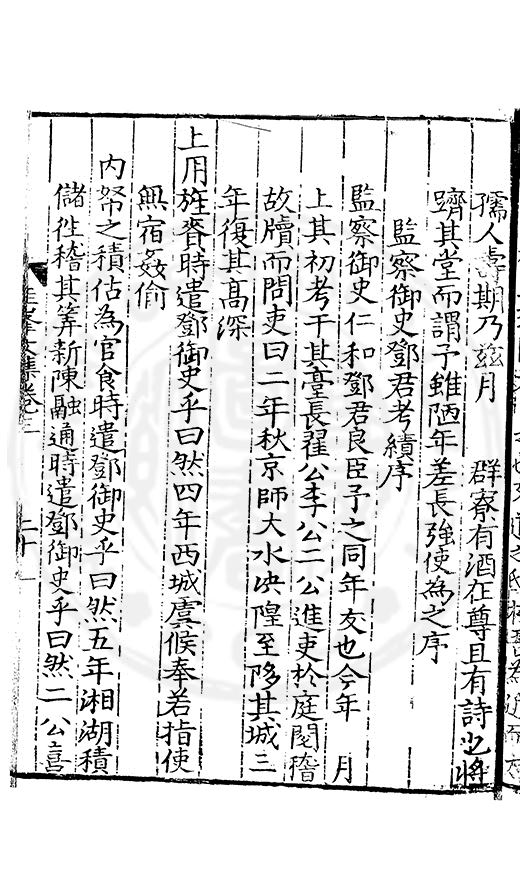 孺人壽期乃茲月　群寮有酒在尊且有詩也將
躋其堂而謂予雖陋年差長強使為之序
監察御史鄧君考績序
監察御史仁和鄧君良臣予之同年友也今年　月
上其初考于其臺長翟公李公二公進吏於庭閱稽
故牘而問吏曰二年秋京師大水決隍至陊其城三
年復其高深
上用旌賚時遣鄧御史乎曰然四年西城虞候奉若指使
無宿姦偷
內帑之積估為官食時遣鄧御史乎曰然五年湘湖積
儲徃稽其筭新陳融通時遣鄧御史乎曰然二公喜
文集卷三
二十一